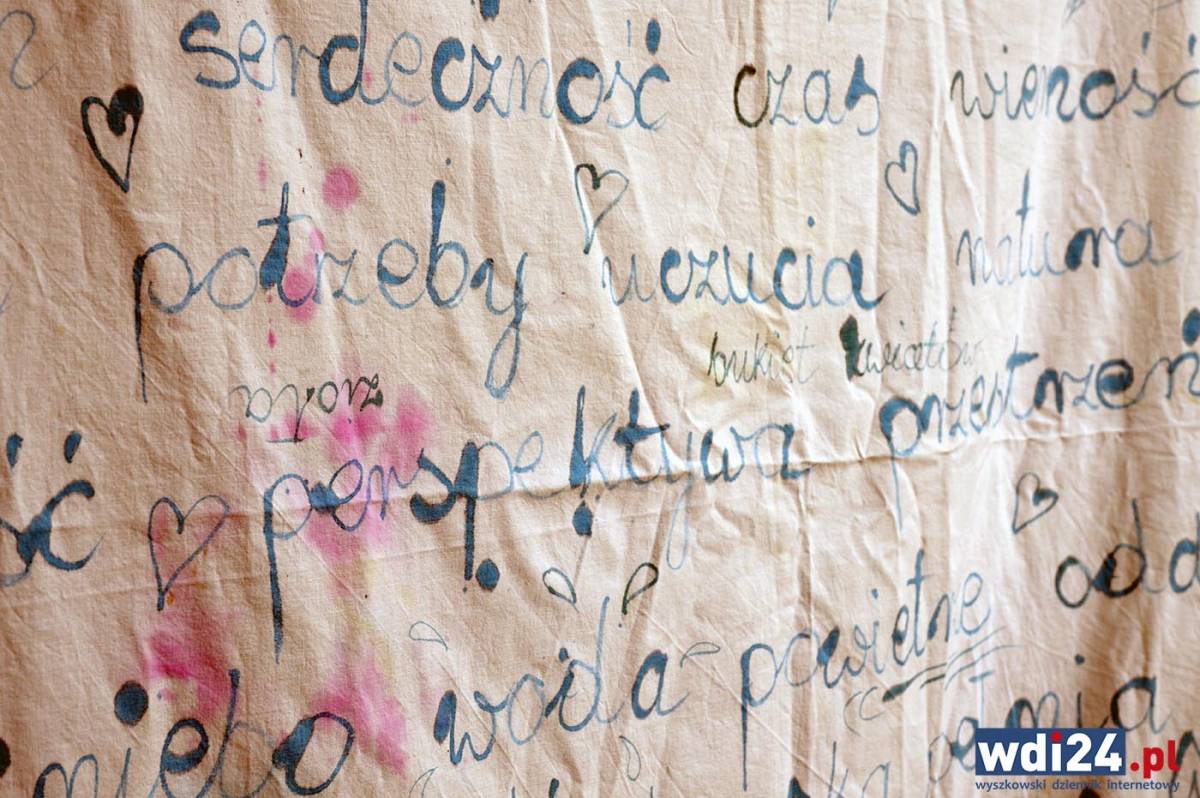 serdeczność czas wierność
potrzeby uczucia natura
bukiet kwiatów
zioła
ść perspektywa przestrzeń
niebo woda powietrze odd
wdi24.pl
wyszkowski dziennik internetowy